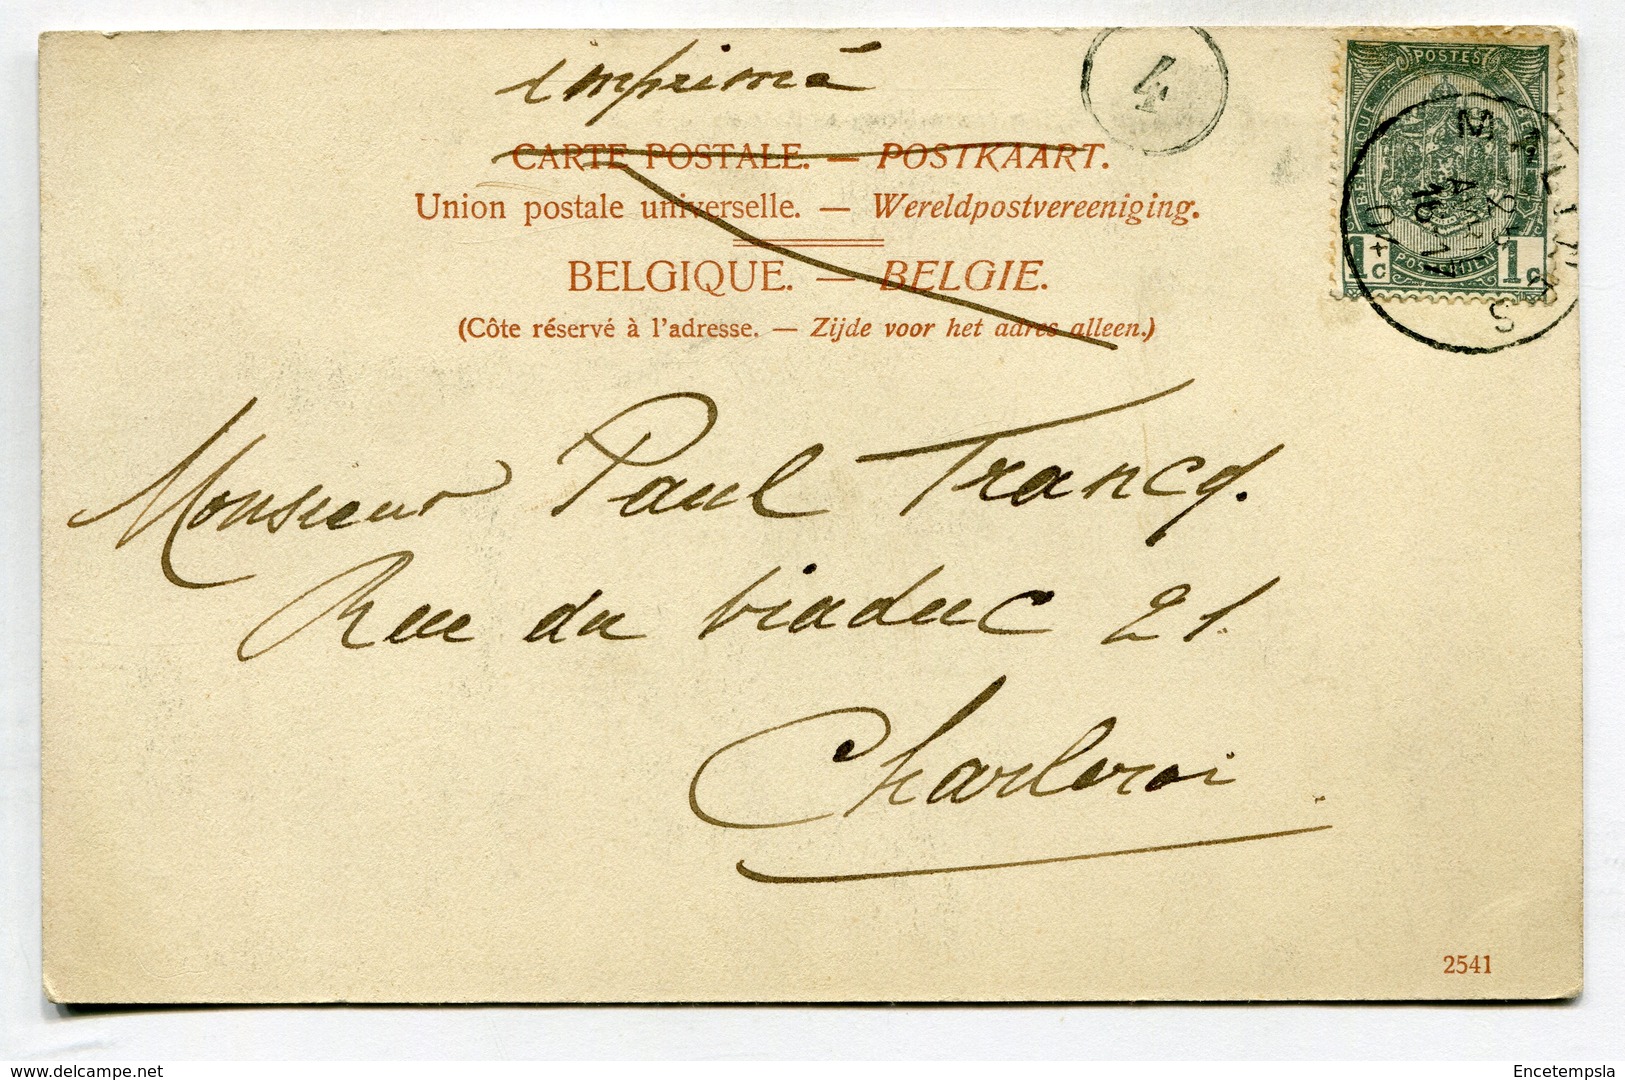 Imprimé
4
POSTES
BELGIQUE
1c 1c
CARTE POSTALE. — POSTKAART.
Union postale universelle. — Wereldpostvereeniging.
BELGIQUE. — BELGIE.
(Côte réservé à l'adresse. — Zijde voor het adres alleen.)
Monsieur Paul Francq.
Rue du Viaduc 21.
Charleroi
2541
delcampe.net
Encetempsla